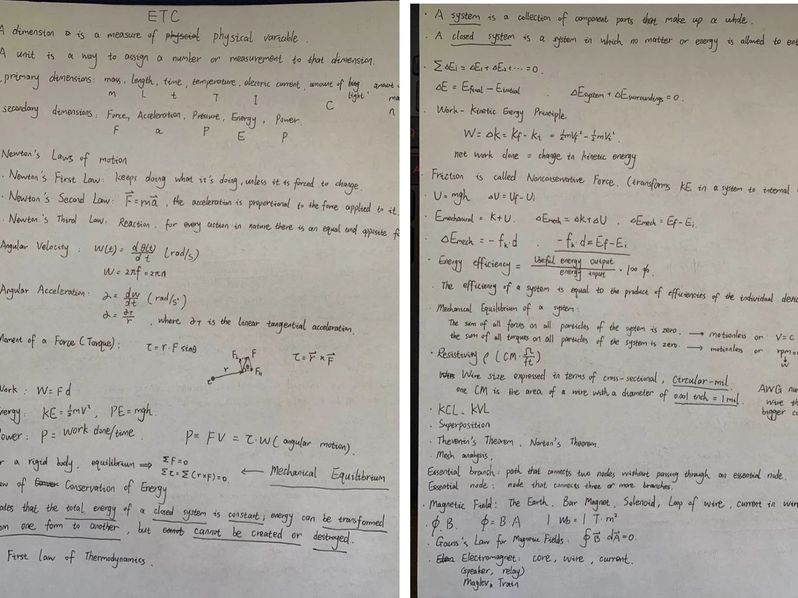 ETC
A dimension is a measure of physical physical variable.
A unit is a way to assign a number or measurement to that dimension.
primary dimensions: mass, length, time, temperature, electric current, amount of light, amount
m L t T I C n
secondary dimensions: Force, Acceleration, Pressure, Energy, Power.
F a P E P
Newton's Laws of motion
· Newton's First Law: keeps doing what it's doing, unless it is forced to change.
· Newton's Second Law: F⃗=ma⃗, the acceleration is proportional to the force applied to it.
· Newton's Third Law: Reaction, for every action in nature there is an equal and opposite
Angular Velocity: W(t) = dθ(t)/dt (rad/s)
W = 2πf = 2πn
Angular Acceleration: α = dw/dt (rad/s²)
α = aT/r, where aT is the linear tangential acceleration.
Moment of a Force (Torque): τ = r·F sinθ τ = r⃗ × F⃗
Work: W = Fd
Energy: KE = ½mV², PE = mgh.
Power: P = work done/time. P = FV = τ·W (angular motion).
r a rigid body, equilibrium ⟹ ΣF=0
Στ = Σ(r×F)=0 ⟵ Mechanical Equilibrium
aw of Conservation of Energy
ates that the total energy of a closed system is constant; energy can be transformed
om one form to another, but cannot cannot be created or destroyed.
First law of Thermodynamics.
· A system is a collection of component parts that make up a whole.
· A closed system is a system in which no matter or energy is allowed to
· ΣΔEi = ΔE1 + ΔE2 + ··· = 0.
ΔE = Efinal − Einitial . ΔEsystem + ΔEsurroundings = 0.
· Work - Kinetic Energy Principle
W = Δk = kf − ki = ½mVf² − ½mVi²
net work done = change in kinetic energy
· Friction is called Nonconservative Force. (transforms KE in a system to internal
· U = mgh. ΔU = Uf − Ui
· Emechanical = K + U. ΔEmech = ΔK + ΔU . ΔEmech = Ef − Ei.
· ΔEmech = − fk·d . − fk·d = Ef − Ei
· Energy efficiency = Useful energy output / energy input · 100 %.
· The efficiency of a system is equal to the product of efficiencies of the individual
Mechanical Equilibrium of a system:
The sum of all forces on all particles of the system is zero. → motionless or V = C
the sum of all torques on all particles of the system is zero. → motionless or rpm
w
· Resistivity ρ (CM·Ω/ft)
Wire size expressed in terms of cross-sectional, Circular-mil.
one CM is the area of a wire with a diameter of 0.001 inch = 1 mil. AWG
wire
bigger
· KCL, KVL
· Superposition
· Thevenin's Theorem, Norton's Theorem.
· Mesh analysis,
Essential branch: path that connects two nodes without passing through an essential node.
Essential node: node that connects three or more branches.
· Magnetic Field: The Earth, Bar Magnet, Solenoid, Loop of wire, current in
· ϕ. B. ϕ = B·A 1 Wb = 1 T·m²
· Gauss's Law for Magnetic Fields: ∮B⃗·dA⃗=0.
· Electromagnet: core, wire, current.
(speaker, relay)
Maglev Train